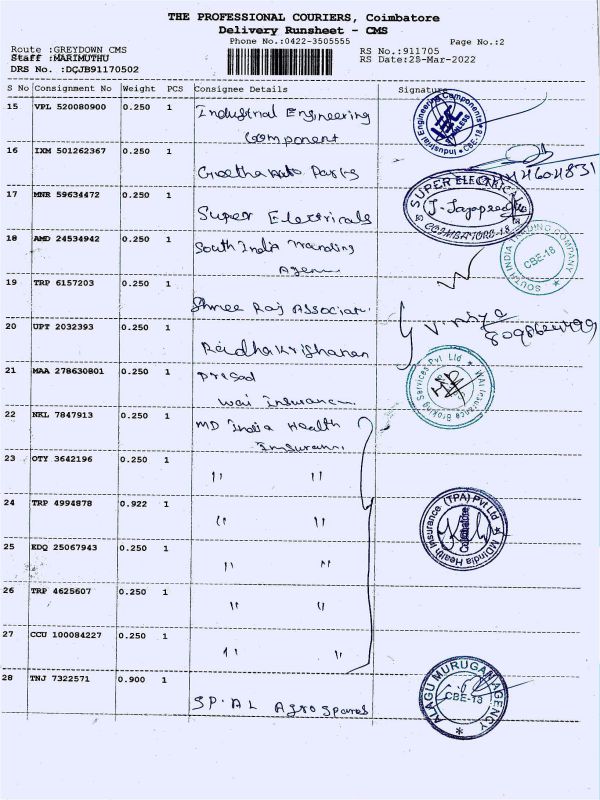 THE PROFESSIONAL COURIERS, Coimbatore
Delivery Runsheet - CMS
Phone No.:0422-3505555
Page No.:2
Route :GREYDOWN CMS
Staff :MARIMUTHU
DRS No. :DCJB91170502
RS No.:911705
RS Date:28-Mar-2022
S No Consignment No Weight PCS Consignee Details Signature
15 VPL 520080900 0.250 1 Industrial Engineering
Component
16 IXM 501262367 0.250 1
17 MNR 59634472 0.250 1 Super Electricals
18 AMD 24534942 0.250 1 South India Tranding
19 TRP 6157203 0.250 1 Shree Raj Associat
20 UPT 2032393 0.250 1 Radhakrishanan
21 MAA 278630801 0.250 1 Prasad
Wai Insuran
22 NKL 7847913 0.250 1 MD India Health
Insuran
23 OTY 3642196 0.250 1 " "
24 TRP 4994878 0.922 1 " "
25 EDQ 25067943 0.250 1 " "
26 TRP 4625607 0.250 1 " "
27 CCU 100084227 0.250 1 " "
28 TNJ 7322571 0.900 1 SP.AL Agrospares
Industrial Engineering Components
CBE-18
SUPER ELECTRICALS
COIMBATORE-18
SOUTH INDIA TRADING COMPANY
CBE-18
WAI Insurance Broking Services Pvt Ltd
MDIndia Health Insurance (TPA) Pvt Ltd
Coimbatore
ALAGU MURUGAN AGENCY
CBE-18